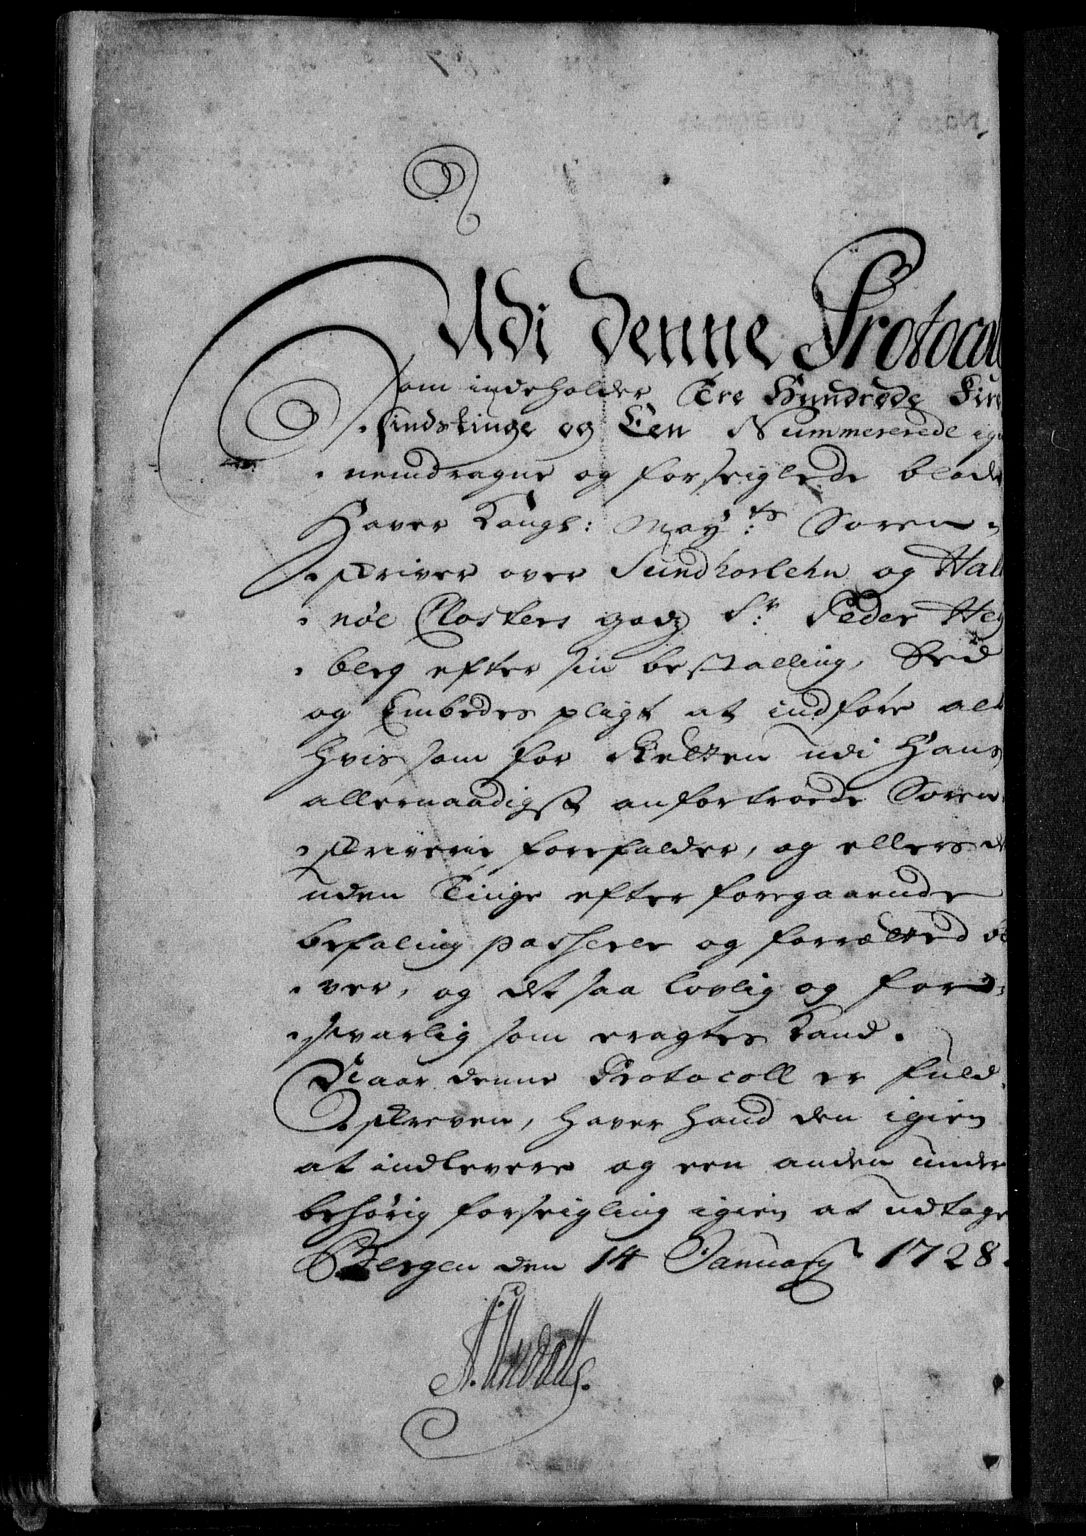 Udi denne Protocoll
som indeholder Tre Hundrede Fire
sindstiuge og Een Nummererede igi
nemdragne og forseiglede blade
Haver Kongl: May:ts Soren-
skriver over Sundhorlehn og Hals
nøe Closters godz Sr: Peder Hey
berg efter sin bestalling, Eed
og Embedes pligt at indføre alt
hvis som for Retten udi hans
allernaadigst anfortroede Soren
skriverie forefalder, og ellers
uden Tinge efter foregaaende
befaling passerer og forrætted bli
ver, og det saa lovlig og for-
svarlig som eragtes kand.
Naar denne Protocoll er fuld-
skreven, haver hand den igien
at indlevere og een anden under
behørig forseigling igien at udtage
Bergen den 14 January 1728.